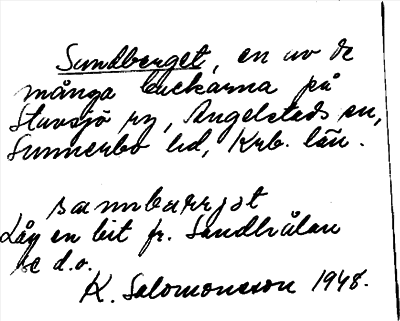 Sundberget, en av de
många backarna på
Stavsjö ry, Angelstads sn,
Sunnerbo hd, Krb. län.
sannbarrjət
Låg en bit fr. Sandhålan
se d.o.
K. Salomonsson 1948.